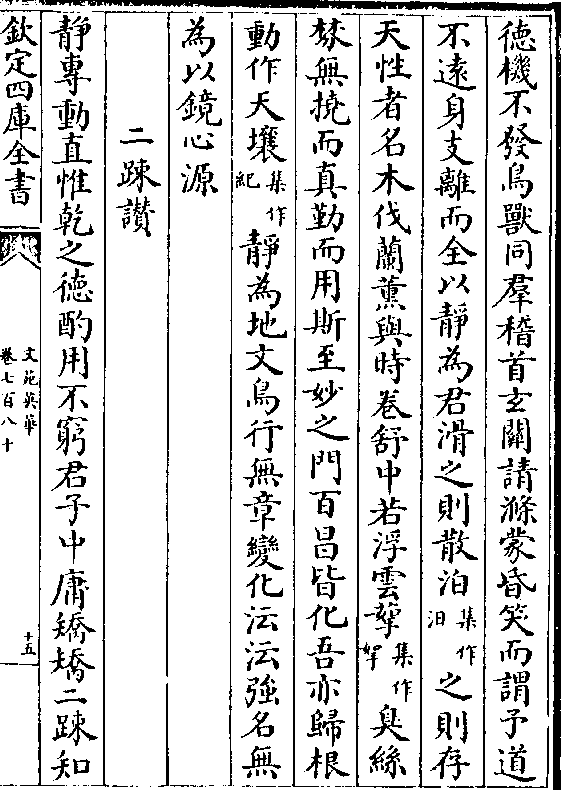 德機不發鳥獸同羣稽首玄關請滌蒙昏笑而謂予道
不遠身支離而全以靜為君滑之則散泊集作汨之則存
天性者名木伐蘭薰與時卷舒中若浮雲犖集作牢臭絲
棼無撓而真勤而用斯至妙之門百昌皆化吾亦歸根
動作天壤集作紀靜為地文鳥行無章變化沄沄強名無
為以鏡心源
二疎讃
靜專動直惟乾之德酌用不窮君子中庸矯矯二疎知
欽定四庫全書
文苑英華
卷七百八十
十五